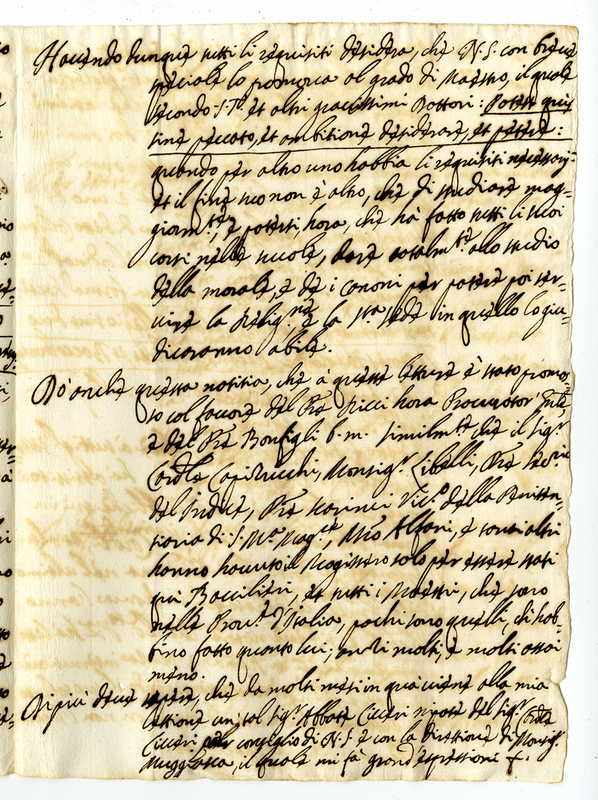 Havendo dunque tutti li requisiti desidera, che N.S. con breve
speciale lo promova al grado di Maestro, il quale
secondo S. Tō. et altri gravissimi Dottori: Potest quis
sine peccato, et ambitione desiderare, et petere:
quando per altro uno habbia li requisiti necessarij
et il fine suo non è altro, che di studiare mag-
giorm.te, e potersi hora, che hà fatto tutti li suoi
corsi nelle scuole, dare totalm.te allo studio
della morale, e de i canoni per potere poi ser-
vire la Relig.ne, e la S.ta Sede in quello lo giu-
dicaranno abile.
Dò anche questa notitia, che à queste letture è stato promos-
so col favore del Prē Ricci hora Procurator
e del Prē Bonfigli b. m. similm.te che il Sig.r
Cardle Capizucchi, Monsig.r Libelli, Prē
del Indice, Prē Marinci Vic.o della Peniten-
tiaria di S. M.a Mag.re, Alfani, e tanti altri
hanno havuto il Magistero solo per essere stati
qui Baccilieri, et tutti i Maestri, che sono
nelle Prov.e d'Italia, pochi sono quelli, ch' hab-
bino fatto quanto lui; anzi molti, e molti assai
meno.
Dipiù deve sapere, che da molti mesi in quà viene alla mia
lettione un tal Sig.r Abbate Ciceri nipote del Sig.r Cardle
Ciceri per conseglio di N.S. e con la direttione di Monsig.r
il quale mi fà grand'espressioni